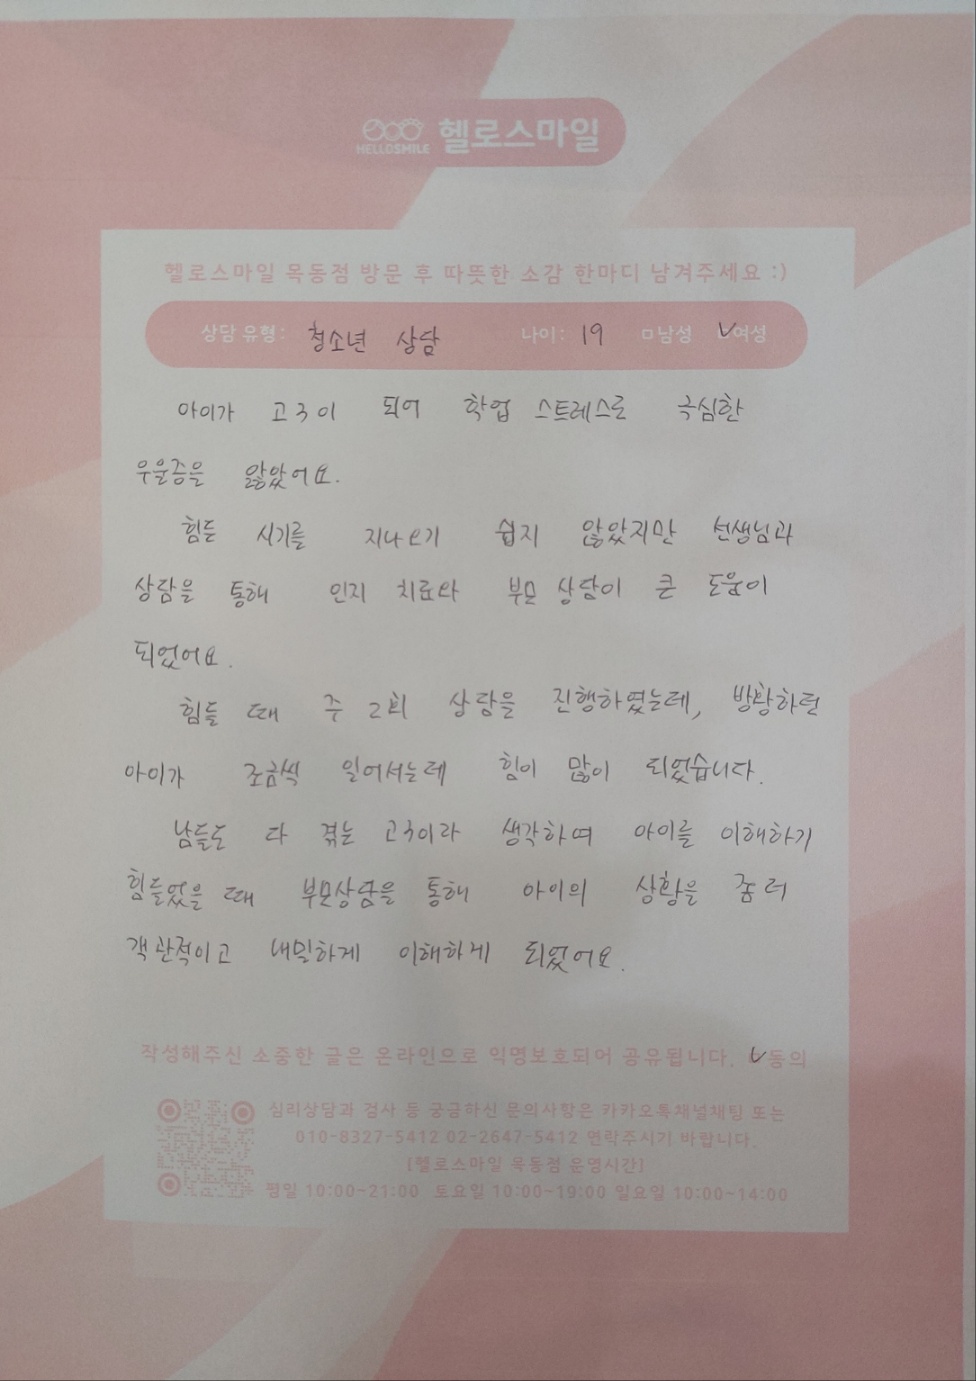 HELLOSMILE 헬로스마일
헬로스마일 목동점 방문 후 따뜻한 소감 한마디 남겨주세요 :)
상담 유형: 청소년 상담 나이: 19 □남성 ✓여성
아이가 고3이 되어 학업 스트레스로 극심한
우울증을 앓았어요.
힘든 시기를 지나오기 쉽지 않았지만 선생님과
상담을 통해 인지 치료와 부모 상담이 큰 도움이
되었어요.
힘들 때 주 2회 상담을 진행하였는데, 방황하던
아이가 조금씩 일어서는데 힘이 많이 되었습니다.
남들도 다 겪는 고3이라 생각하며 아이를 이해하기
힘들었을 때 부모상담을 통해 아이의 상황을 좀 더
객관적이고 내밀하게 이해하게 되었어요.
작성해주신 소중한 글은 온라인으로 익명보호되어 공유됩니다. ✓동의
심리상담과 검사 등 궁금하신 문의사항은 카카오톡채널채팅 또는
010-8327-5412 02-2647-5412 연락주시기 바랍니다.
[헬로스마일 목동점 운영시간]
평일 10:00~21:00 토요일 10:00~19:00 일요일 10:00~14:00